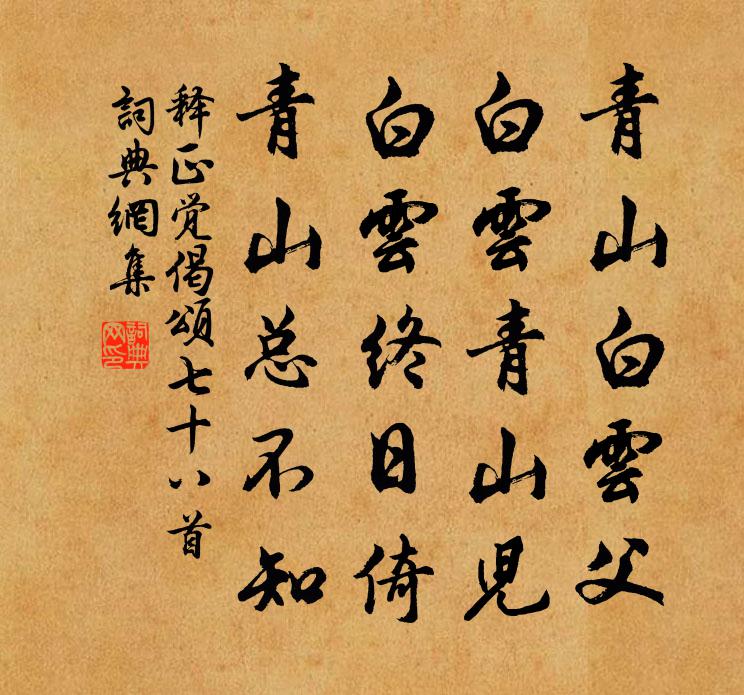 青山白雲父
白雲青山児
白雲終日倚
青山总不知
释正觉偈頌七十八首
詞典網集
詞典网印